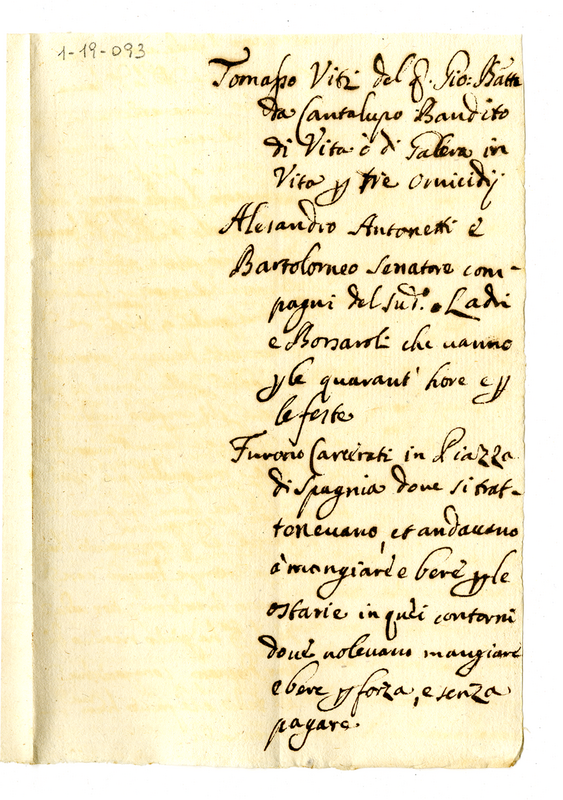 1-19-093
Tomasso Viti del q. Gio: Batta
da Cantalupo Bandito
di Vita è di Galera in
Vita p tre omicidij
Alesandro Antonetti è
Bartolomeo Senatore com-
pagni del sud.º Ladri
e Borsaroli che uanno
p le quarant' hore e p
le feste
Furono Carcerati in Piazza
di Spagnia doue si trat-
teneuano, et andauano
à mangiare e bere p le
ostarie in quei contorni
doue uoleuano mangiare
e bere p forza, e senza
pagare